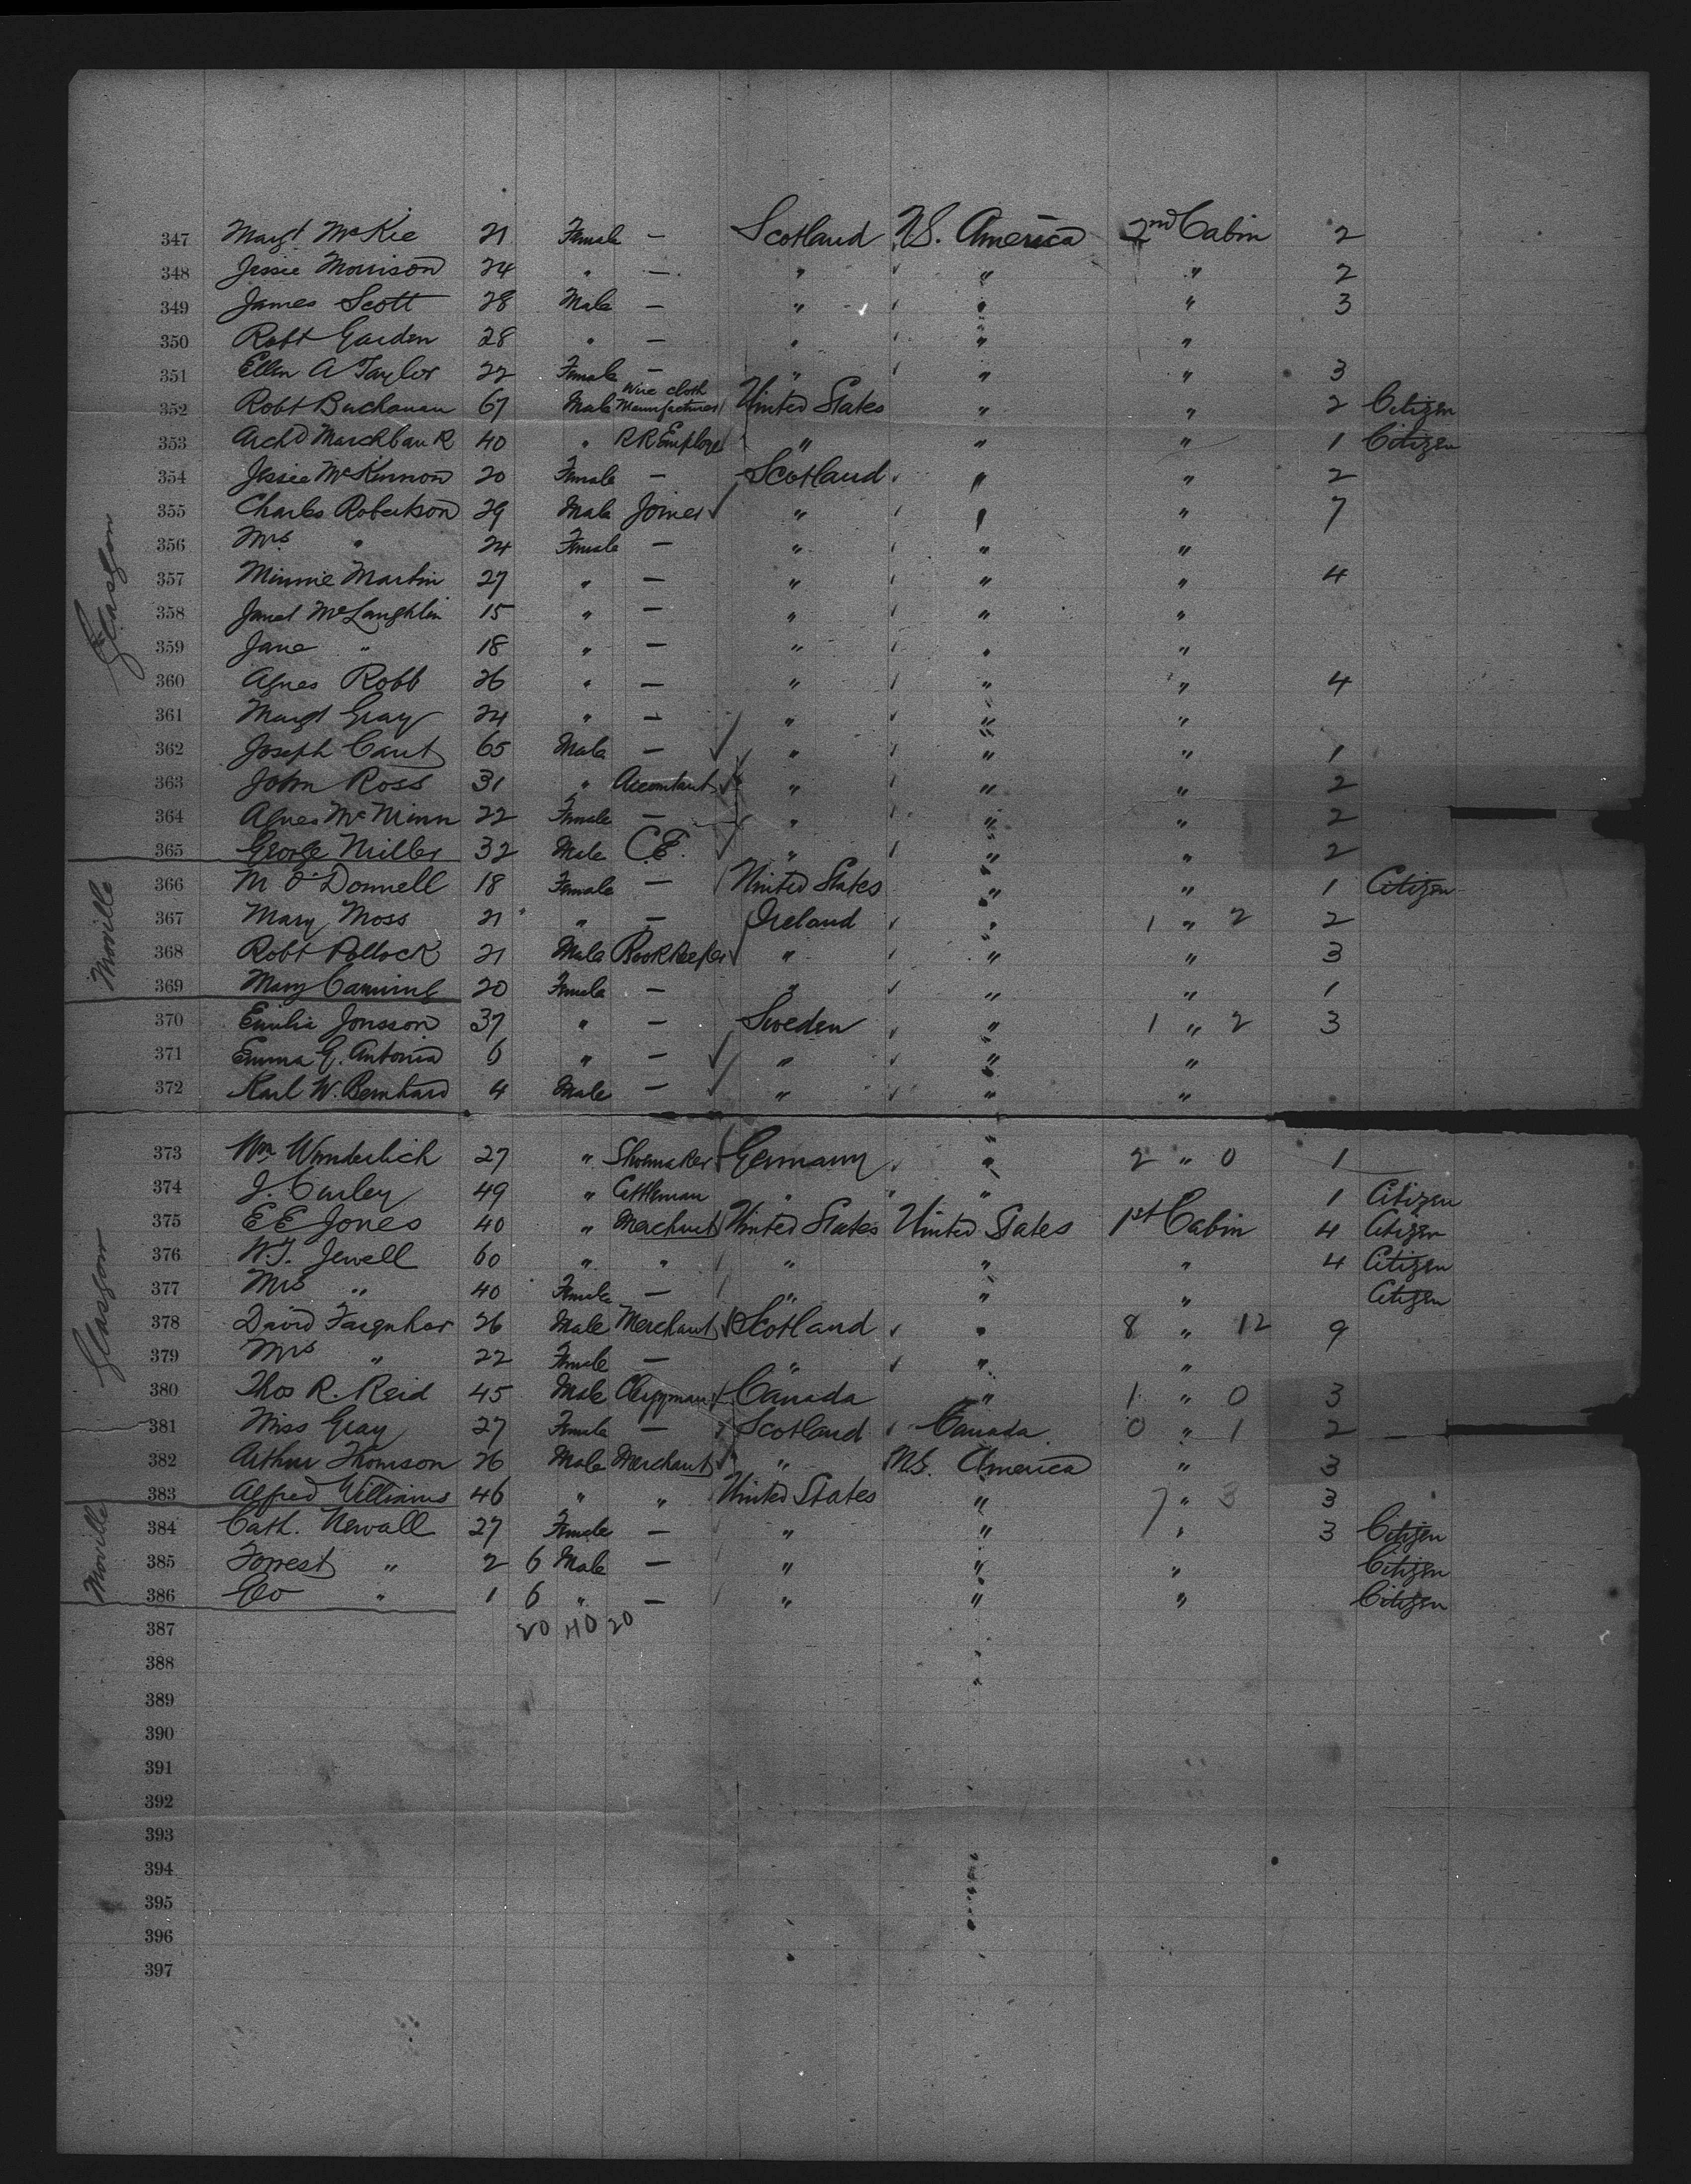 347 Margt. McKie 21 Female — Scotland U.S. America 2nd Cabin 2
348 Jessie Morrison 24 " — " " " 2
349 James Scott 28 Male — " " " 3
350 Robt Garden 28 " — " " "
351 Ellen A Taylor 22 Female — " " " 3
352 Robt Buchanan 67 Male Wire cloth Manufacturer United States " " 2 Citizen
353 Archd Marchbank 40 " RR Employe " " " 1 Citizen
354 Jessie McKinnon 20 Female — Scotland " " 2
355 Charles Robertson 29 Male Joiner " " " 7
356 Mrs " 24 Female — " " "
357 Minnie Martin 27 " — " " " 4
358 Janet McLaughlin 15 " — " " "
Glasgow
359 Jane " 18 " — " " "
360 Agnes Robb 26 " — " " " 4
361 Margt Gray 24 " — " " "
362 Joseph Cant 65 Male — " " " 1
363 John Ross 31 " Accountant " " " 2
364 Agnes McMinn 22 Female — " " " 2
365 George Miller 32 Male C.E. " " " 2
366 M O'Donnell 18 Female — United States " " 1 Citizen
367 Mary Moss 21 " — Ireland " 1 " 2 2
Moville
368 Robt Pollock 21 Male Bookkeeper " " " 3
369 Mary Canning 20 Female — " " " 1
370 Emilia Jonsson 37 " — Sweden " 1 " 2 3
371 Emma G. Antonia 6 " — " " "
372 Karl W. Bernhard 4 Male — " " "
373 Wm Wunderlich 27 " Shoemaker Germany " 2 " 0 1
374 J. Curley 49 " Cattleman " " 1 Citizen
375 E E Jones 40 " Merchant United States United States 1st Cabin 4 Citizen
376 W.T. Jewell 60 " " " " " 4 Citizen
377 Mrs " 40 Female — " " " Citizen
Glasgow
378 David Farquhar 26 Male Merchant Scotland " 8 " 12 9
379 Mrs " 22 Female — " " "
380 Thos R. Reid 45 Male Clergyman Canada " 1 " 0 3
381 Miss Gray 27 Female — Scotland Canada 0 " 1 2
382 Arthur Thomson 26 Male Merchant " U.S. America " 3
383 Alfred Williams 46 " " United States " 7 " 3 3
384 Cath. Newall 27 Female — " " " 3 Citizen
Moville
385 Forrest " 2 6 Male — " " " Citizen
386 Geo " 1 6 " — " " " Citizen
387 20 40 20
388
389
390
391
392
393
394
395
396
397